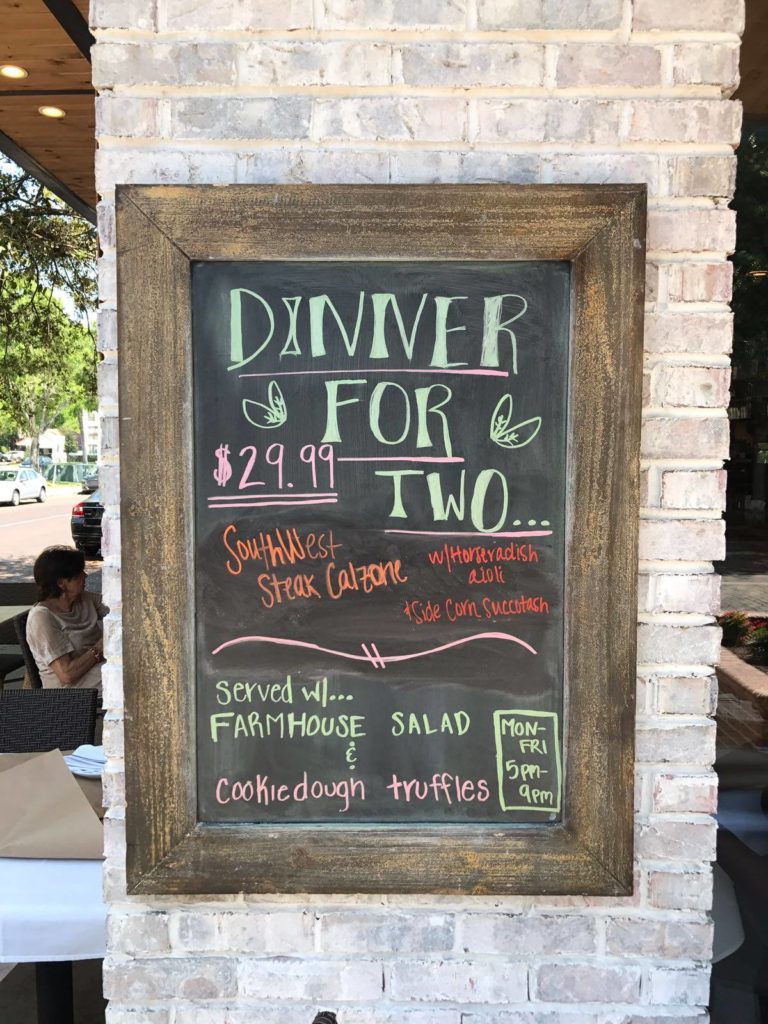 DINNER
FOR
$29.99
TWO...
SouthWest
Steak Calzone
w/Horseradish
aioli
+Side Corn Succotash
Served w/...
FARMHOUSE SALAD
&
cookiedough truffles
MON-
FRI
5pm-
9pm